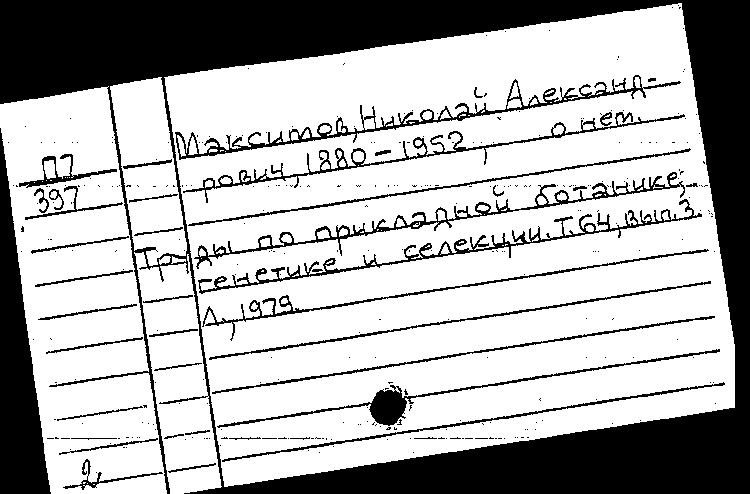 Максимов, Николай Александ-
рович, 1880-1952, о нем.
П7
397
Труды по прикладной ботанике,
генетике и селекции. Т.64, вып.3.
Л., 1979.
2